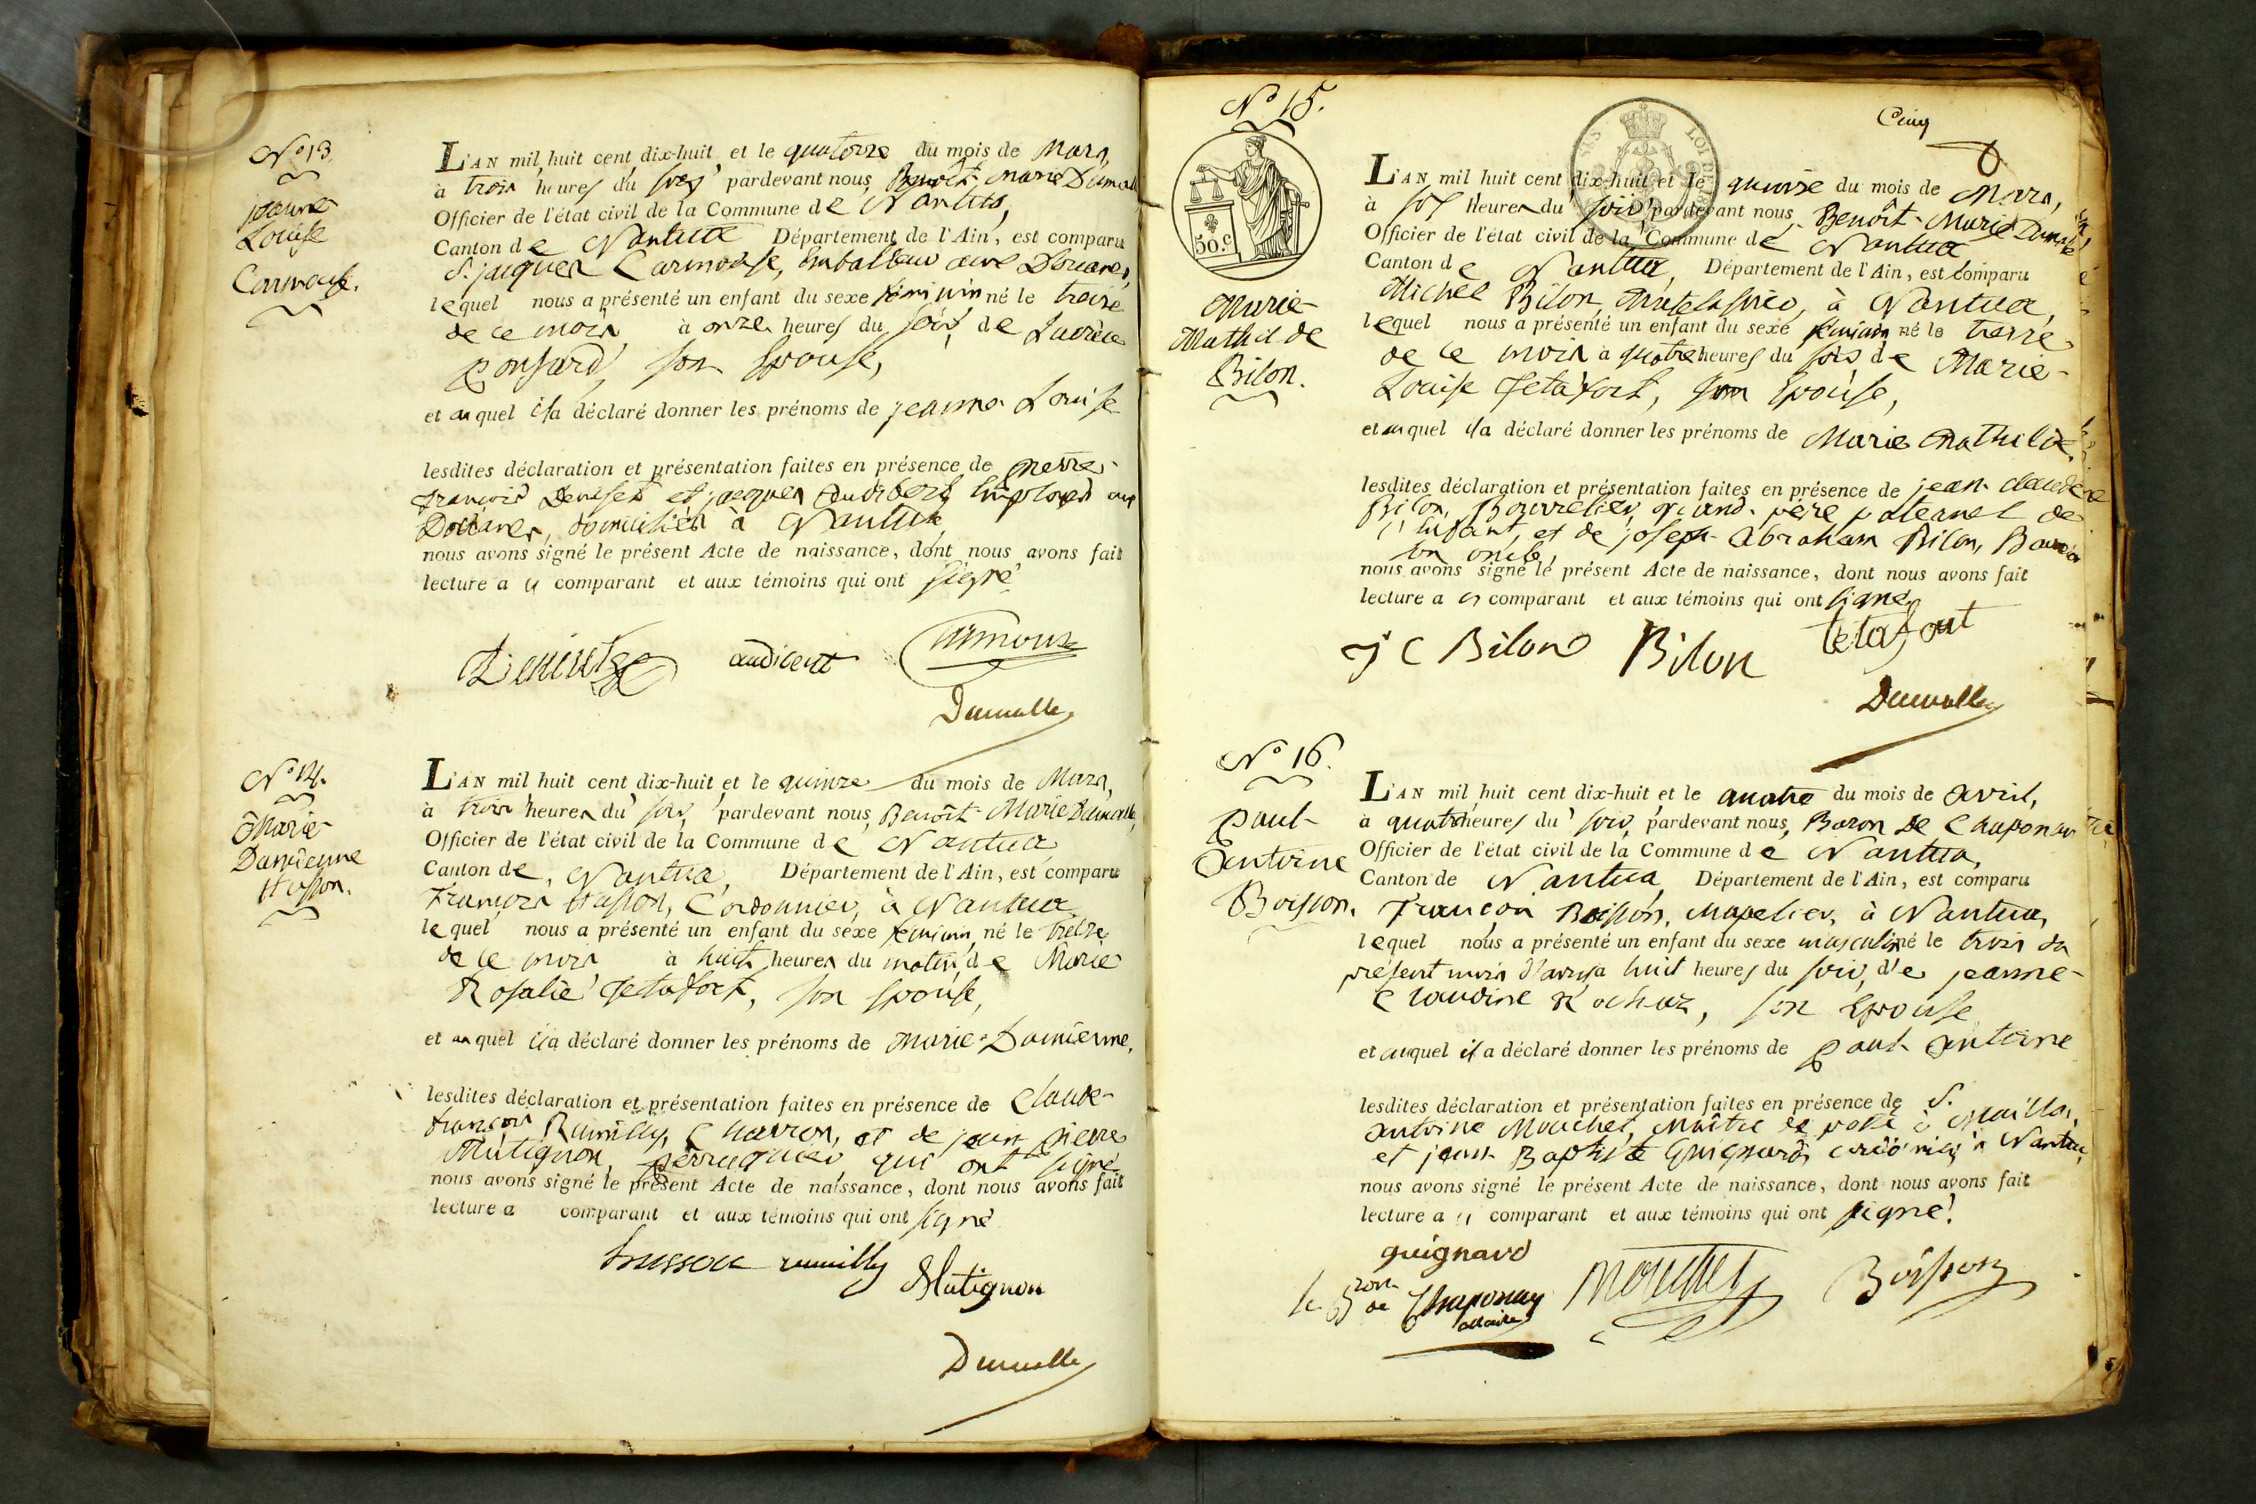 N° 13.
jeanne
Louise
Carmouse.
L'AN mil huit cent dix-huit et le quatorze du mois de Mars,
à trois heures du soir pardevant nous, Benoît-Marie Dumolle
Officier de l'état civil de la Commune de Nantua,
Canton de Nantua Département de l'Ain, est comparu
S. jacques Carmouse, aux Douanes,
lequel nous a présenté un enfant du sexe féminin né le treize
de ce mois à onze heures du soir de
Ponsard, son Epouse,
et auquel il a déclaré donner les prénoms de jeanne Louise
lesdites déclaration et présentation faites en présence de pierre
françois et jacques Employés aux
Douanes, domiciliés à Nantua
nous avons signé le présent Acte de naissance, dont nous avons fait
lecture au comparant et aux témoins qui ont signé
Carmouse
Dumolle
N° 14.
Marie
Damienne
Husson.
L'AN mil huit cent dix-huit et le quinze du mois de Mars,
à trois heures du soir pardevant nous, Benoît-Marie Dumolle,
Officier de l'état civil de la Commune de Nantua
Canton de Nantua, Département de l'Ain, est comparu
François Husson, Cordonnier, à Nantua
lequel nous a présenté un enfant du sexe féminin, né le treize
de ce mois à huit heures du matin de Marie
Rosalie Tetafort, son Epouse,
et auquel il a déclaré donner les prénoms de Marie-Damienne.
lesdites déclaration et présentation faites en présence de Claude-
françois Rumilly, Charron, et de jean pierre
Mutignon, perruquier qui ont signé
nous avons signé le présent Acte de naissance, dont nous avons fait
lecture a comparant et aux témoins qui ont signé
husson rumilly Mutignon
Dumolle
N° 15.
50.c
Cinq
Marie-
Mathilde
Bilon.
L'AN mil huit cent dix-huit et le quinze du mois de Mars,
à heures du soir pardevant nous, Benoît-Marie Dumolle
Officier de l'état civil de la Commune de Nantua
Canton de Nantua, Département de l'Ain, est comparu
Michel Bilon, à Nantua,
lequel nous a présenté un enfant du sexe féminin né le treize
de ce mois à quatre heures du soir de Marie-
Louise Tetafort, son Epouse,
et auquel il a déclaré donner les prénoms de Marie Mathilde.
lesdites déclaration et présentation faites en présence de jean claude
Bilon, Bourrelier, grand-père paternel de
l'Enfant, et de joseph Abraham Bilon,
son oncle,
nous avons signé le présent Acte de naissance, dont nous avons fait
lecture au comparant et aux témoins qui ont signé,
J C Bilon Bilon tetafort
Dumolle
N° 16.
paul-
antoine
Boisson.
L'AN mil huit cent dix-huit et le quatre du mois de avril,
à quatre heures du soir, pardevant nous, Baron De Chaponay
Officier de l'état civil de la Commune de Nantua,
Canton de Nantua, Département de l'Ain, est comparu
François Boisson, Chapelier, à Nantua,
lequel nous a présenté un enfant du sexe masculin né le trois du
présent mois d'avril à huit heures du soir, de jeanne-
Claudine Rochaz, son Epouse
et auquel il a déclaré donner les prénoms de paul antoine
lesdites déclaration et présentation faites en présence de S.
antoine Mouchet, Maître de poste à Maillat,
et jean Baptiste Guignard, à Nantua,
nous avons signé le présent Acte de naissance, dont nous avons fait
lecture au comparant et aux témoins qui ont signé.
guignard
le Bron de Chaponay Mouchet Boisson
Maire